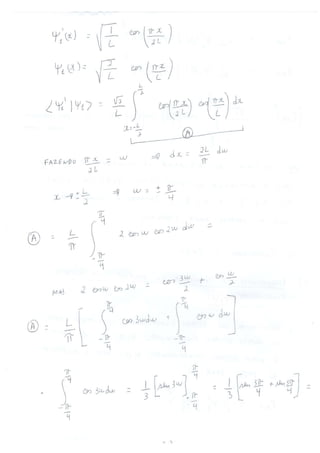 ψ₁'(x) = √(1/L) cos(πx/2L)
ψ₁(x) = √(2/L) cos(πx/L)
⟨ψ₁'|ψ₁⟩ = √2/L ∫_{x=-L/2}^{L/2} cos(πx/2L) cos(πx/L) dx
(A)
FAZENDO πx/2L = w ⇒ dx = 2L/π dw
x → ± L/2 ⇒ w = ± π/4
(A) = L/π ∫_{-π/4}^{π/4} 2 cos w cos 2w dw =
MAS 2 cos w cos 2w = cos 3w/2 + cos w/2
(A) = L/π [ ∫_{-π/4}^{π/4} cos 3w dw + ∫_{-π/4}^{π/4} cos w dw ]
• ∫_{-π/4}^{π/4} cos 3w dw = 1/3 [sen 3w]_{-π/4}^{π/4} = 1/3 [sen 3π/4 + sen 3π/4] =